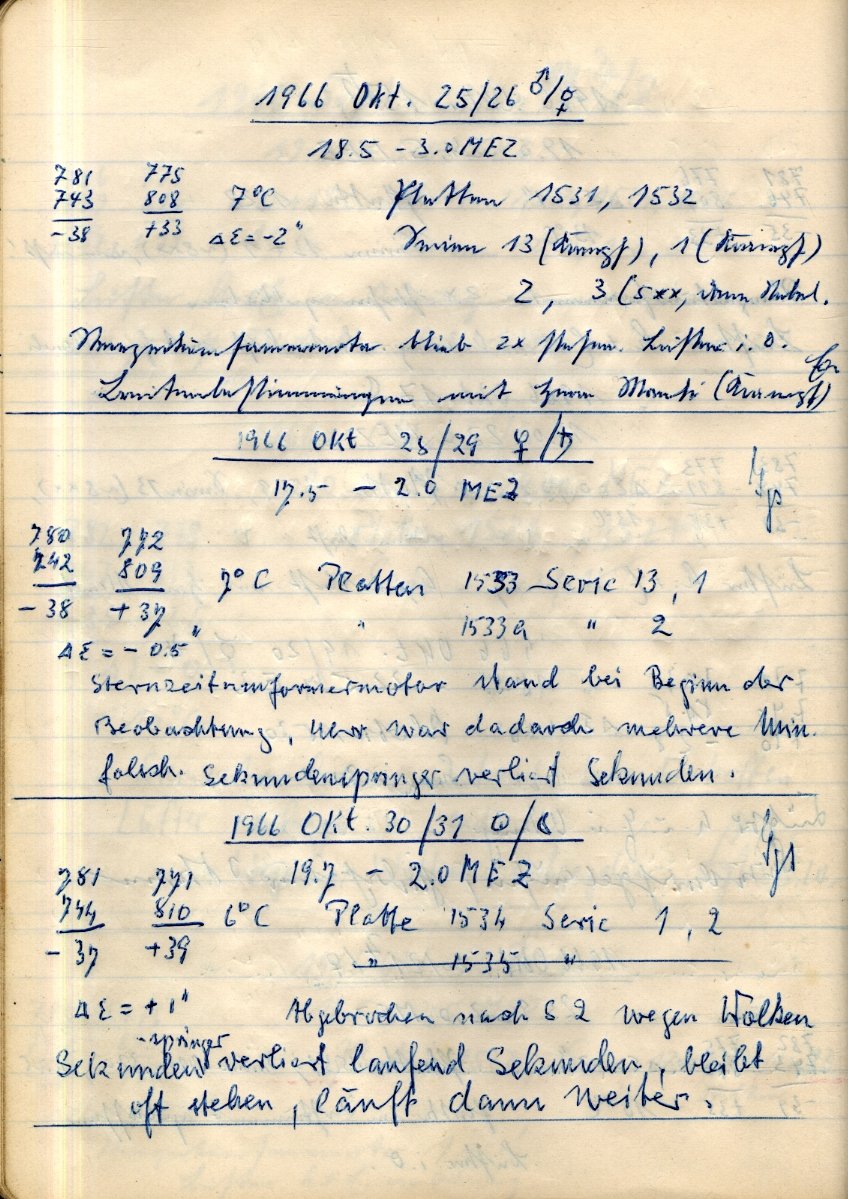 1966 Okt. 25/26 ♂/☿
18.5 - 3.0 MEZ
781 775
743 808 7°C Platten 1531, 1532
-38 +33 Δε = -2" Serien 13 (Kampf), 1 (Kampf)
2, 3 (5xx, dann Nebel.
blieb 2x stehen. Lüfter i. O.
mit Herrn (Kampf)
1966 Okt 28/29 ♀/♄
17.5 - 2.0 MEZ
780 772
742 809 7°C Platten 1533 Serie 13, 1
-38 +37 " 1533a " 2
Δε = - 0.5"
Sternzeitumformermotor stand bei Beginn der
Beobachtung, Uhr war dadurch mehrere Min.
falsch. Sekundenspringer verliert Sekunden.
1966 Okt. 30/31 ☉/☾
781 771 19.7 - 2.0 MEZ
744 810 6°C Platte 1534 Serie 1, 2
-37 +39 " 1535 "
Δε = + 1" Abgebrochen nach S 2 wegen Wolken
-springer
Sekunden verliert laufend Sekunden, bleibt
oft stehen, läuft dann weiter.